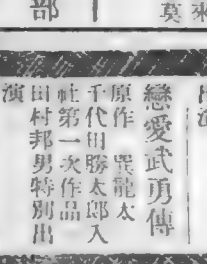 部
莫來
出演
戀愛武勇傳
原作 巽龍太
千代田勝太郎入
社第一次作品
田村邦男特別出
演